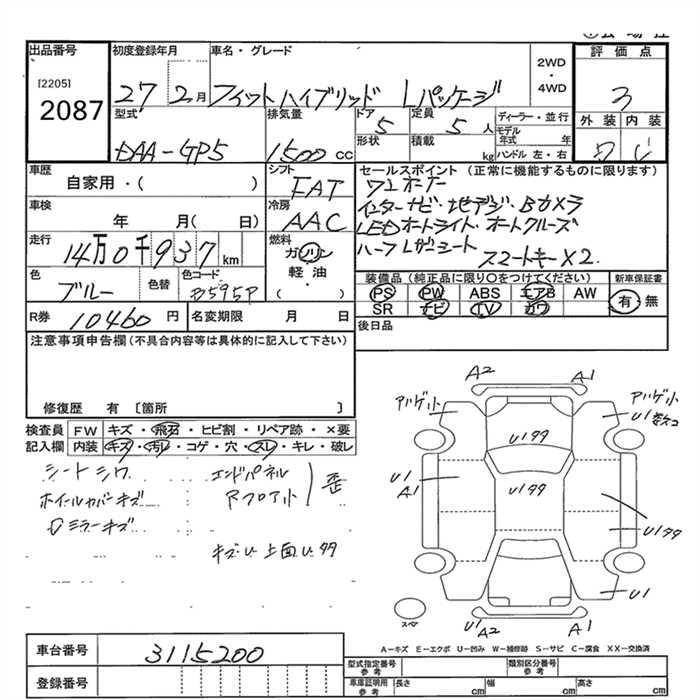 出品番号 初度登録年月 車名・グレード 2WD・4WD 評価点
[2205]
2087
27 2月 フィットハイブリッド Lパッケージ 3
型式 排気量 ドア 定員 ディーラー・並行 外装 内装
5 5人 モデル年式 年
DAA-GP5 1500cc 形状 積載 kg ハンドル 左・右 C
車歴 シフト セールスポイント (正常に機能するものに限ります)
自家用・( ) FAT ワンオーナー
車検 冷房 インターナビ・地デジ・Bカメラ
年 月( 日) AAC LEDオートライト・オートクルーズ
走行 燃料 ハーフLガーシート スマートキー×2
14万0千937km ガソリン
色 色替 色コード 軽油・ 装備品(純正品に限り○をつけてください) 新車保証書
ブルー B595P ( ) PS PW ABS エアB AW 有・無
SR ナビ TV カワ
R券 10460円 名変期限 月 日 後日品
注意事項申告欄(不具合内容等は具体的に記入して下さい)
修復歴 有 〔箇所 〕
検査員記入欄 FW キズ・飛石・ヒビ割・リペア跡・×要
内装 キズ・汚レ・コゲ・穴・スレ・キレ・破レ
シートシワ エンドパネル
ホイールカバーキズ Rフロア小 歪
ドミラーキズ
キズU 上面Uタタ
A2 A1
アハ°ゲ小 アハ°ゲ小
U1 数ヶ
Uタタ
U1 A1 Uタタ
Uタタ
U1
スペア U1 A2 A1
A-キズ E-エクボ U-凹み W-補修跡 S-サビ C-腐食 XX-交換済
車台番号 3115200
登録番号
型式指定番号 参考 類別区分番号 参考
車庫証明用 参考 長さ cm 幅 cm 高さ cm